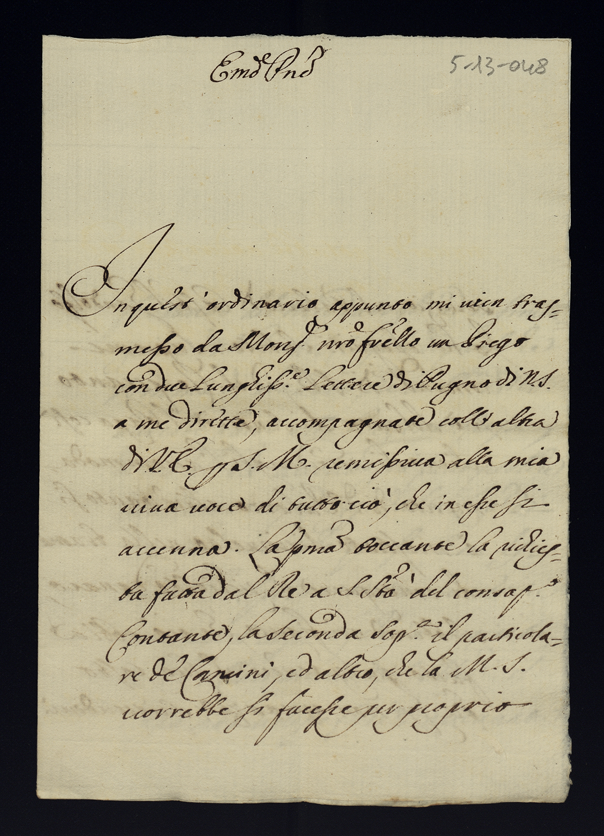 Em.o Pnē
5-13-048
In quest'ordinario appunto mi vien tras=
messo da Mons.r nr̃o frēllo un Piego
con due Lunghiss.e Lettere di Pugno di N.S.
a me dirette, accompagnate coll'altra
di V.E. p S.M. remissiva alla mia
viva voce di tutto ciò, che in esse si
accenna. La pm̃a toccante la richies=
ta fatta dal Re a S. Stà del consap.e
Contante, la seconda sop.a il particola=
re de Camini, ed altro, che la M. S.
vorrebbe si facesse per proprio